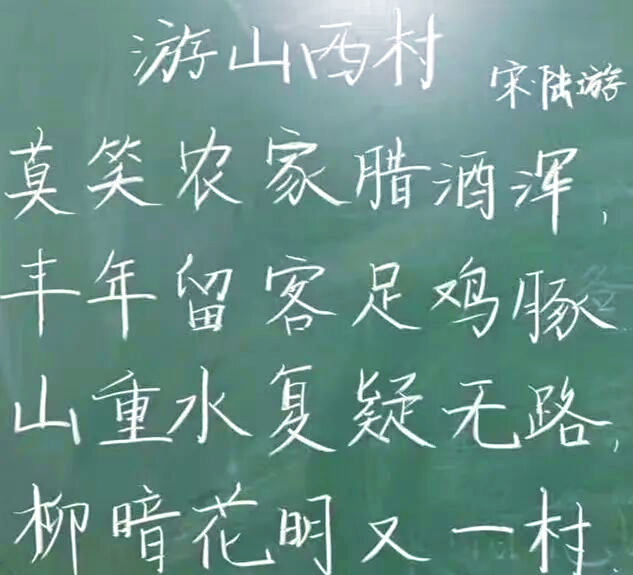 游山西村
宋·陆游
莫笑农家腊酒浑,
丰年留客足鸡豚
山重水复疑无路,
柳暗花明又一村.